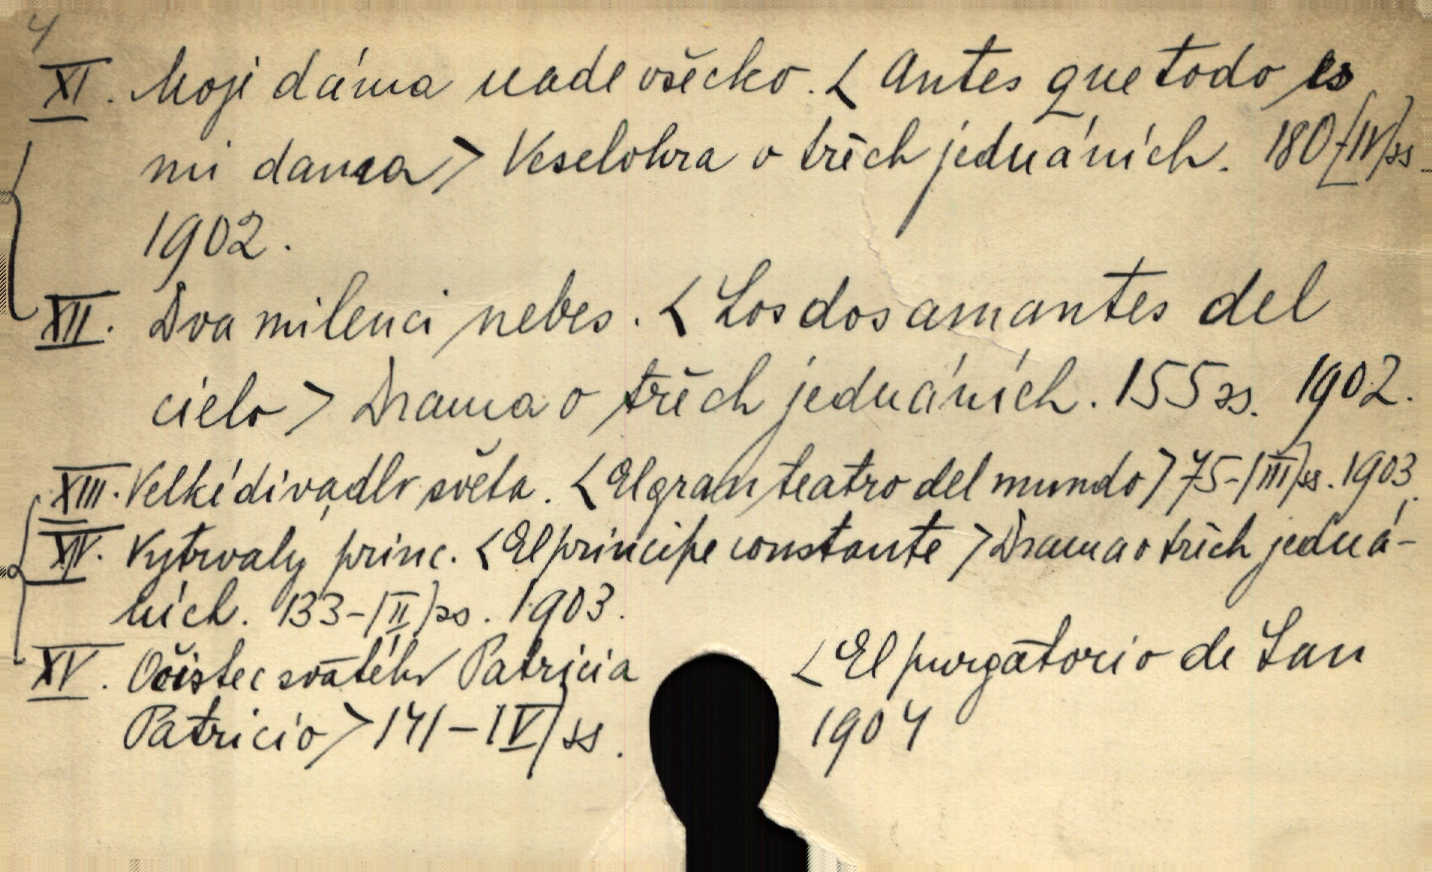 4
XI. Moji dáma nade všecko. < Antes que todo es
mi dama > Veselohra o třech jednáních. 180-[IV]ss.
1902.
XII. Dva milenci nebes. < Los dos amantes del
cielo > Drama o třech jednáních. 155 ss. 1902.
XIII. Velké divadlo světa. < El gran teatro del mundo > 75-(III)ss. 1903.
XIV. Vytrvalý princ. < El principe constante > Drama o třích jedná-
ních. 133-(II)ss. 1903.
XV. Očistec svatého Patricia < El purgatorio de San
Patricio > 141-(IV)ss. 1904